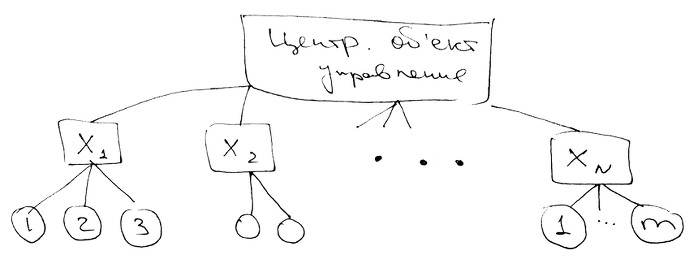 Центр. об'ект
управление
X₁
X₂
• • •
X_N
1
2
3
1
...
m